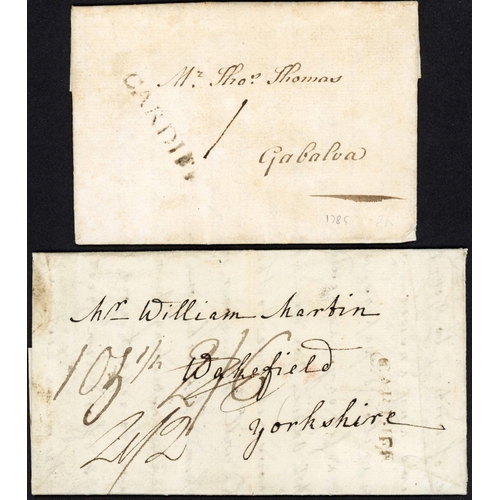 Mr. Thos. Thomas
CARDIFF
1
Gabalva
1785
Mr William Martin
Wakefield
2/2
Yorkshire
CARDIFF